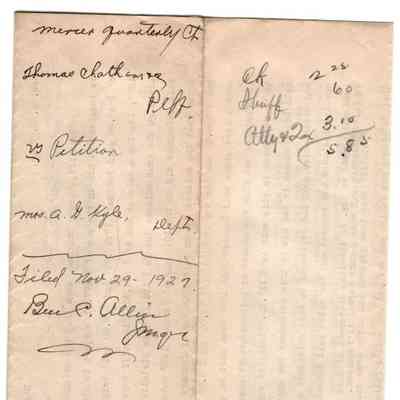 Mercer Quarterly Ct
Thomas Chatham
Plff.
vs Petition
Mrs. A. G. Kyle, Deft.
Filed Nov 29 - 1927.
Ben C. Allin
Judge
Ck 2 25
Shiff 60
Atty & Tax 3.10
5.85